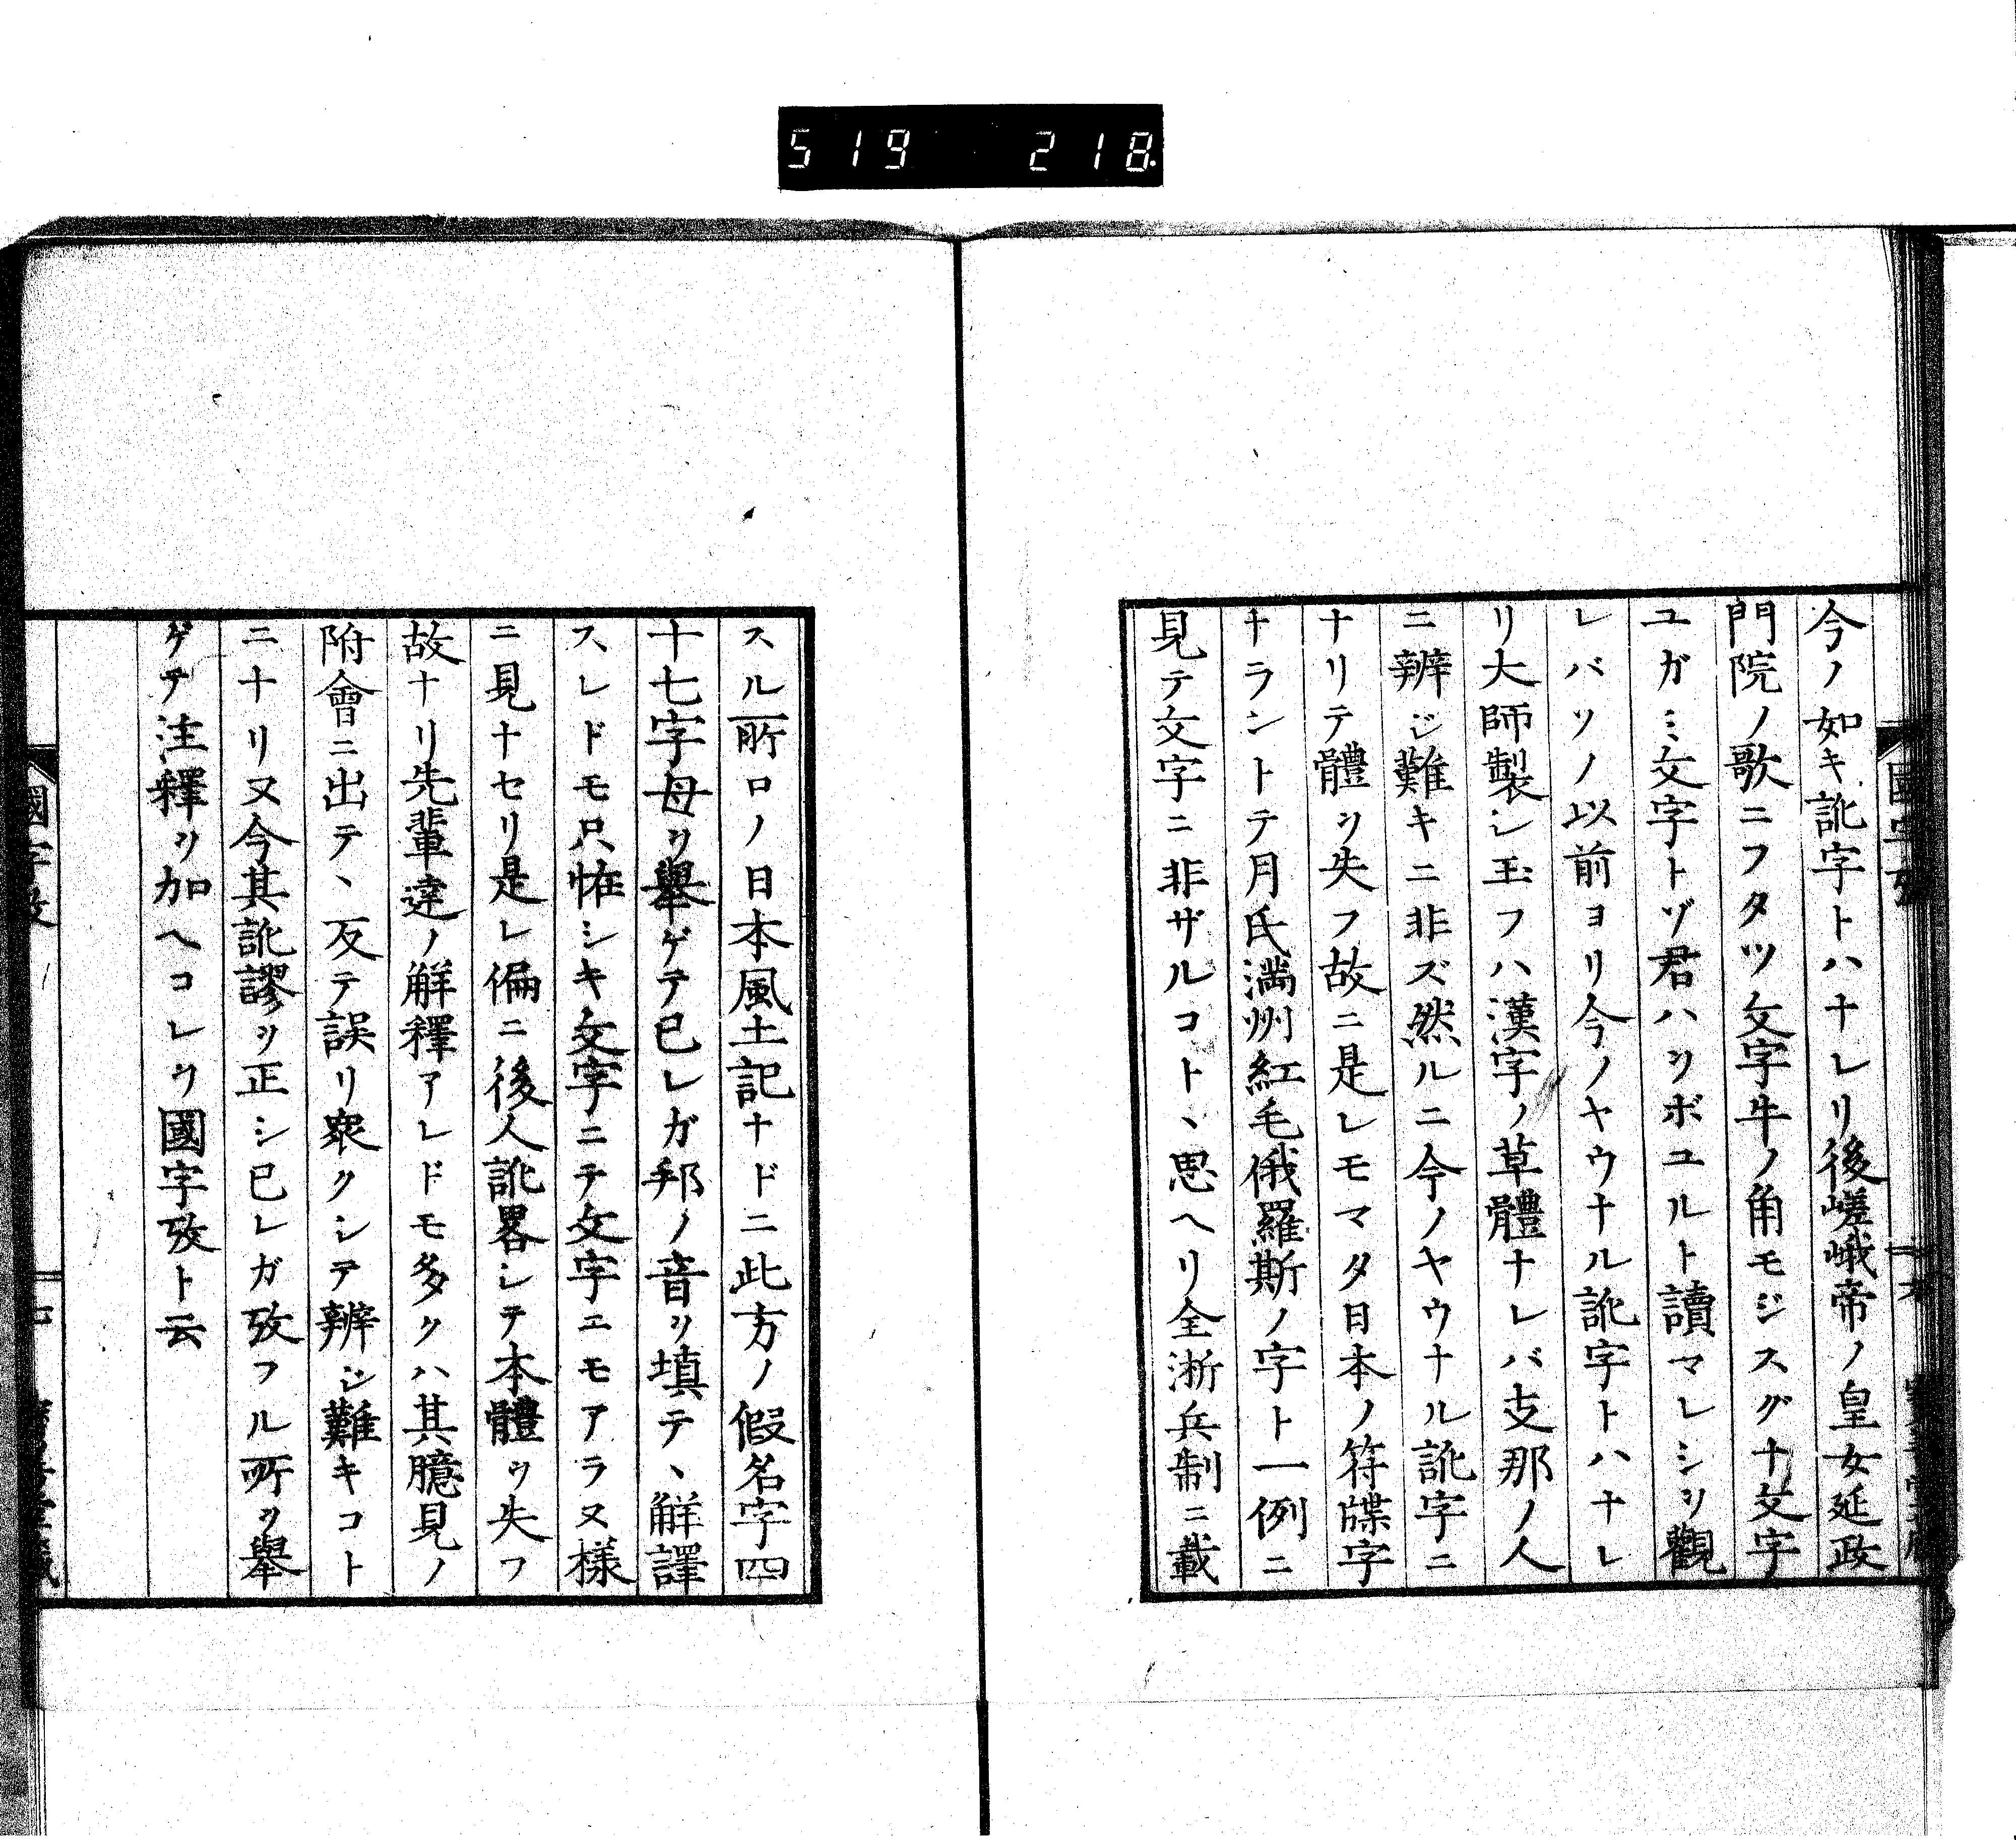 519 218
今ノ如キ訛字トハナレリ後嵯峨帝ノ皇女延政
門院ノ歌ニフタツ文字牛ノ角モジスグナ文字
ユガミ文字トゾ君ハヲボユルト讀マレシヲ觀
レバソノ以前ヨリ今ノヤウナル訛字トハナレ
リ大師製シ玉フハ漢字ノ草體ナレバ支那ノ人
ニ辨ジ難キニ非ズ然ルニ今ノヤウナル訛字ニ
ナリテ體ヲ失フ故ニ是レモマタ日本ノ符牒字
ナラントテ月氏満州紅毛俄羅斯ノ字ト一例ニ
見テ文字ニ非ザルコトヽ思ヘリ全浙兵制ニ載
スル所ロノ日本風土記ナドニ此方ノ假名字四
十七字母ヲ舉ゲテ已レガ邦ノ音ヲ填テヽ解譯
スレドモ只恠シキ文字ニテ文字エモアラヌ樣
ニ見ナセリ是レ偏ニ後人訛畧シテ本體ヲ失フ
故ナリ先輩達ノ解釋アレドモ多クハ其臆見ノ
附會ニ出テヽ反テ誤リ衆クシテ辨ジ難キコト
ニナリ又今其訛謬ヲ正シ已レガ攷フル所ヲ舉
ゲテ注釋ヲ加ヘコレヲ國字攷ト云
國字攷